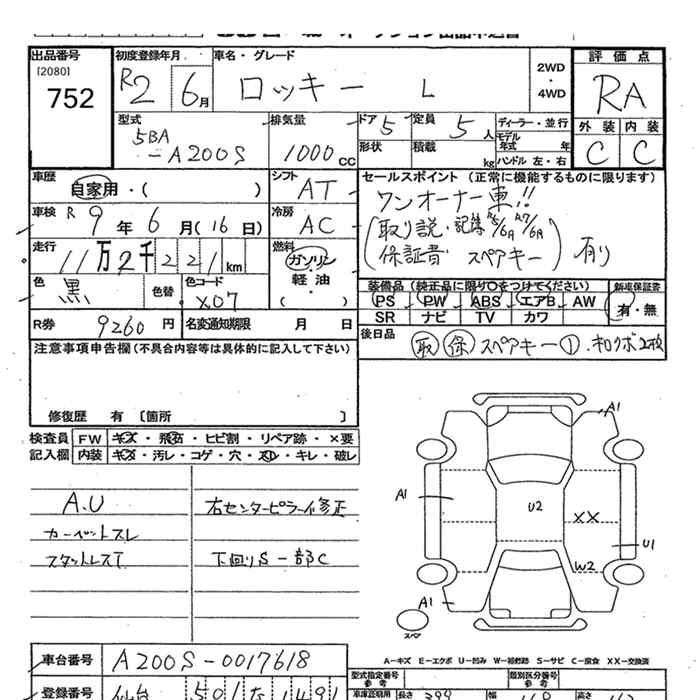 出品番号
[2080]
752
初度登録年月
R2 6月
車名・グレード
ロッキー L
2WD
・
4WD
評価点
RA
外装 内装
C C
型式
5BA
-A200S
排気量
1000cc
ドア 5
定員 5人
ディーラー・並行
モデル
年式 年
形状
積載 kg
ハンドル 左・右
車歴
自家用・( )
シフト
AT
車検 R 9年 6月(16日)
冷房
AC
走行
11万2千221km
燃料
ガソリン・
軽油
・( )
色
黒
色替
色コード
X07
R券 9260円
名変通知期限 月 日
セールスポイント(正常に機能するものに限ります)
ワンオーナー車!!
(取り説・記簿 R5/6月 R7/6月
保証書 スペアキー) 有り
装備品(純正品に限り○をつけてください)
PS PW ABS エアB AW
SR ナビ TV カワ
新車保証書
有・無
後日品
取 保 スペアキー① ホロクボ2枚
注意事項申告欄(不具合内容等は具体的に記入して下さい)
修復歴 有 [箇所 ]
検査員 FW キズ・飛石・ヒビ割・リペア跡・×要
記入欄 内装 キズ・汚レ・コゲ・穴・スレ・キレ・破レ
A.U
カーペットスレ
スタットレスT
右センターピラーイ修正
下回りS一部C
A1
A1
U2
XX
U1
W2
A1
スペア
A-キズ E-エクボ U-凹み W-補修跡 S-サビ C-腐食 XX-交換済
車台番号 A200S-0017618
登録番号 仙台 501 た 1491
型式指定番号
参考
類別区分番号
参考
車庫証明用
長さ 399
幅
高さ